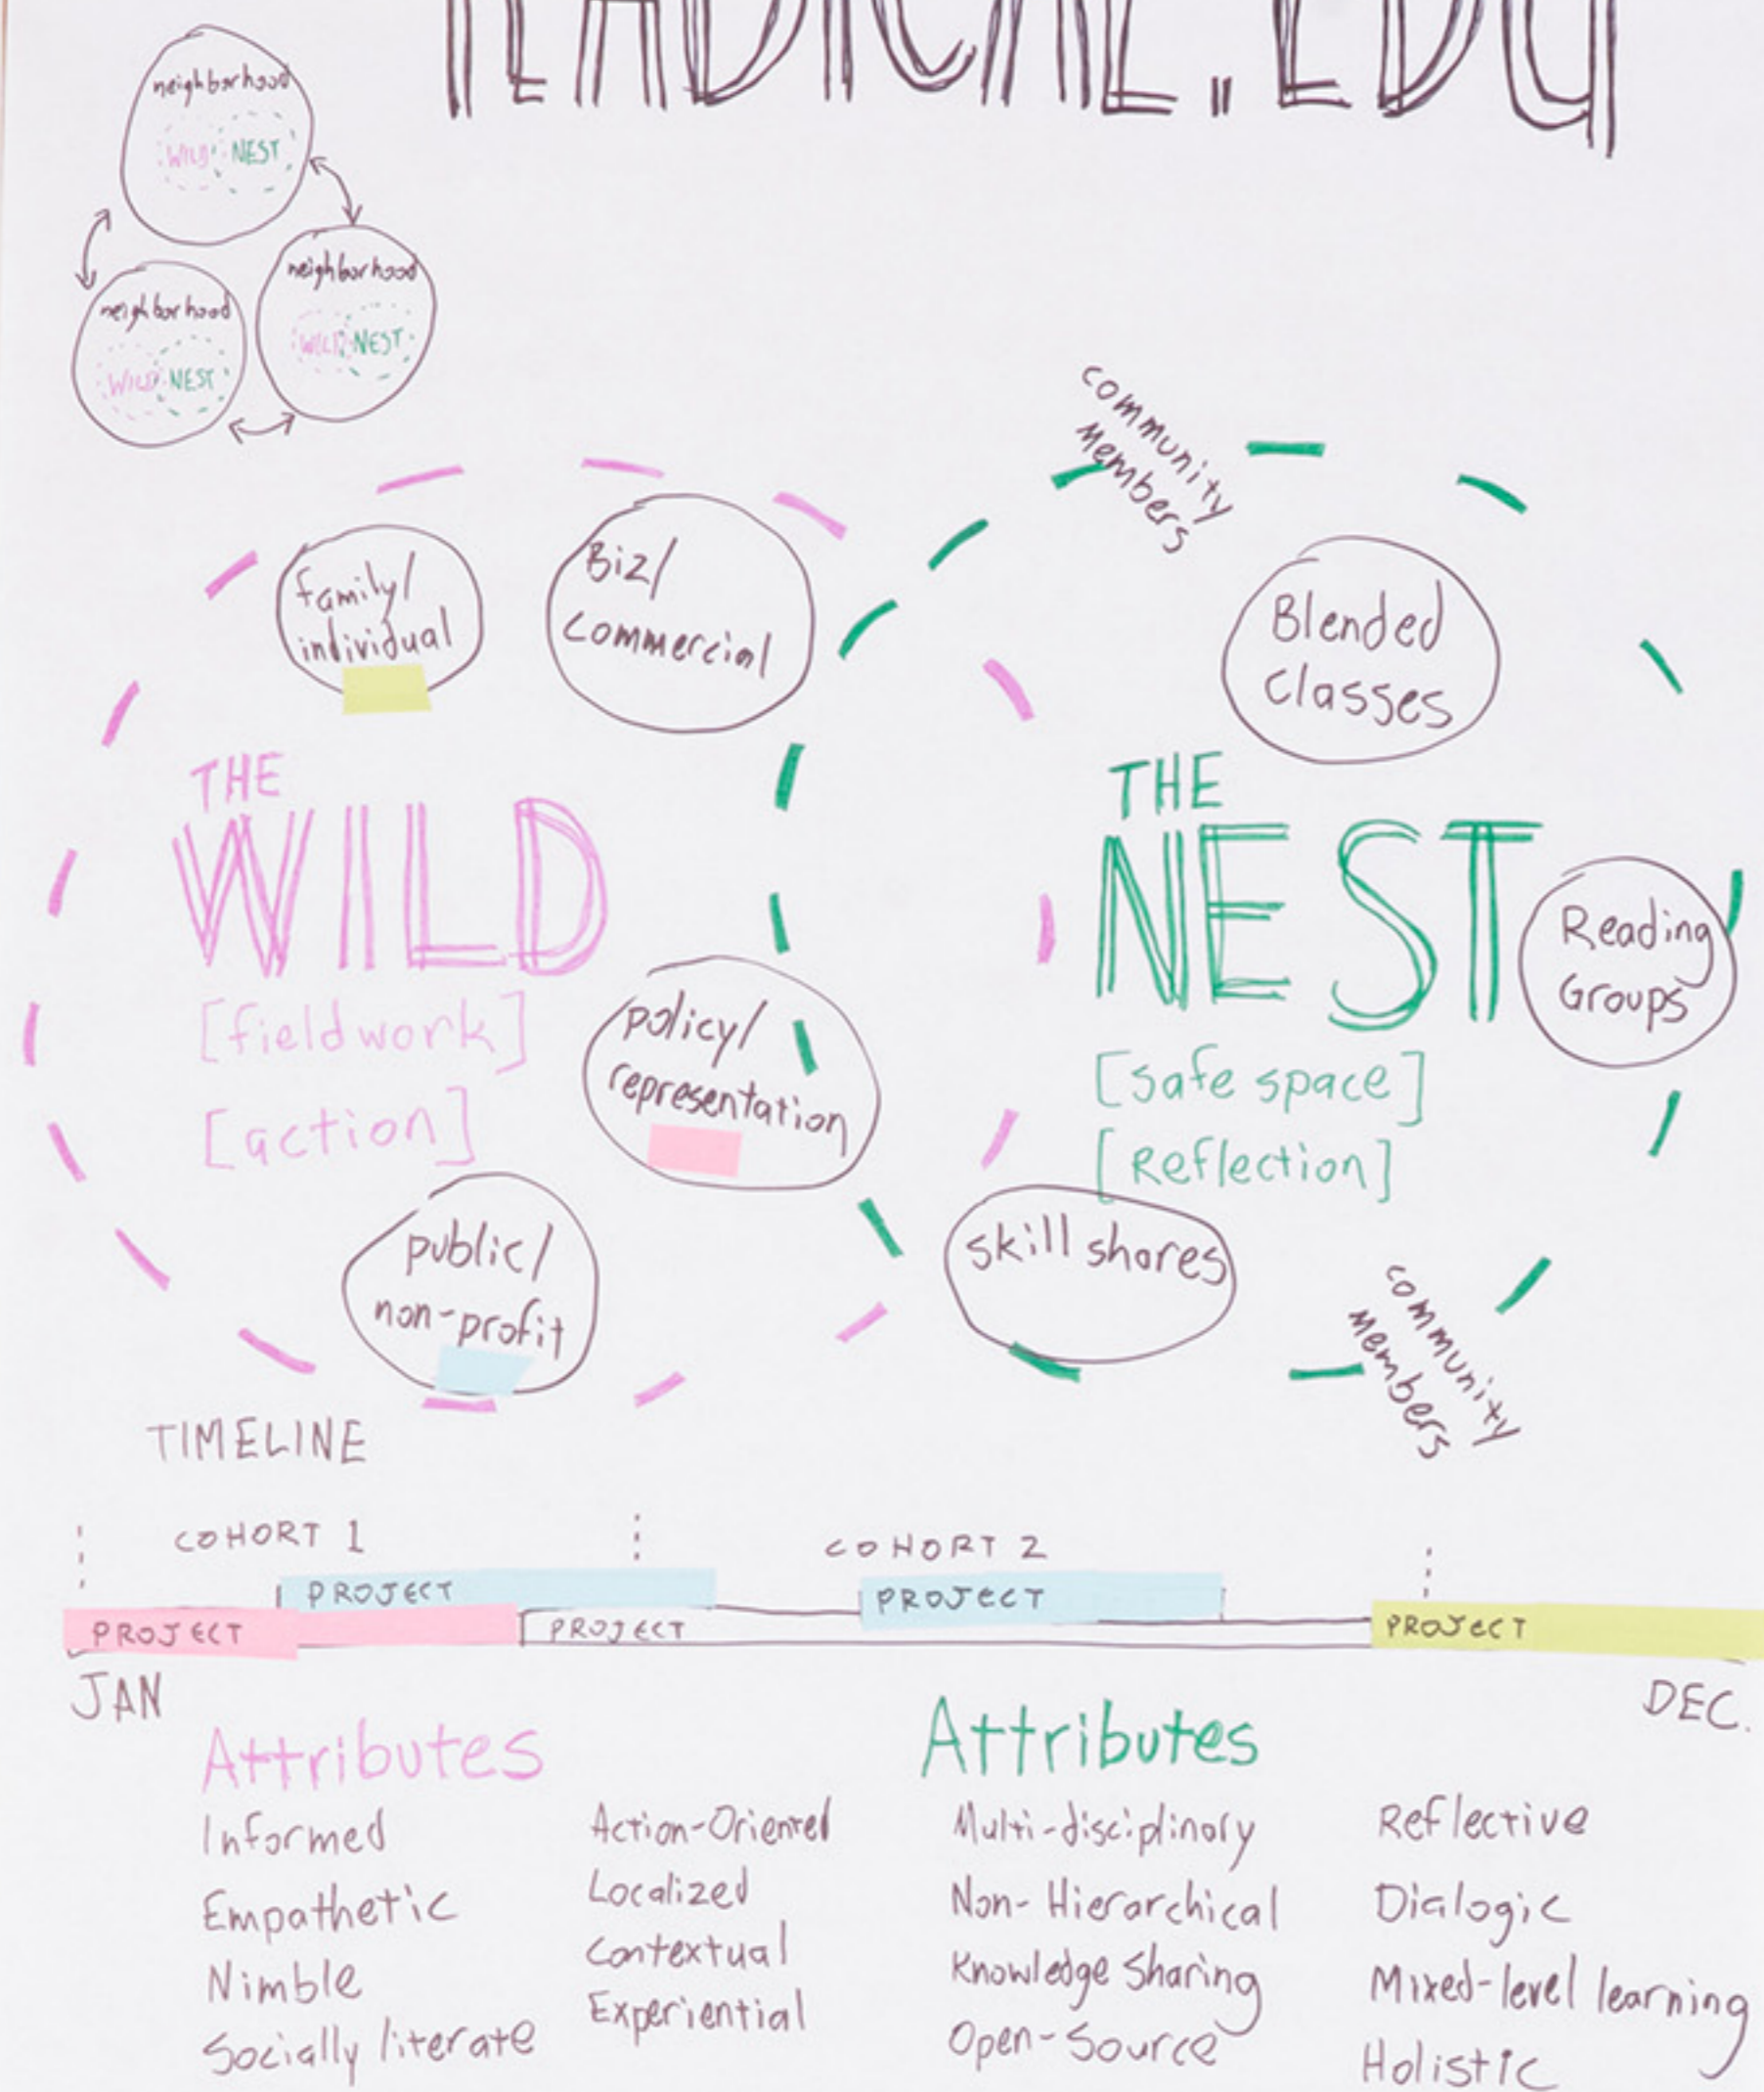 RADICAL.EDU
neighborhood
WILD NEST
neighborhood
WILD NEST
neighborhood
WILD NEST
community
Members
family/
individual
Biz/
commercial
Blended
Classes
THE
WILD
[fieldwork]
[action]
THE
NEST
[safe space]
[Reflection]
Reading
Groups
policy/
representation
public/
non-profit
skill shares
community
Members
TIMELINE
COHORT 1
COHORT 2
PROJECT
PROJECT
PROJECT
PROJECT
PROJECT
JAN
DEC.
Attributes
Informed
Empathetic
Nimble
Socially literate
Action-Oriented
Localized
Contextual
Experiential
Attributes
Multi-disciplinary
Non-Hierarchical
Knowledge Sharing
Open-Source
Reflective
Dialogic
Mixed-level learning
Holistic